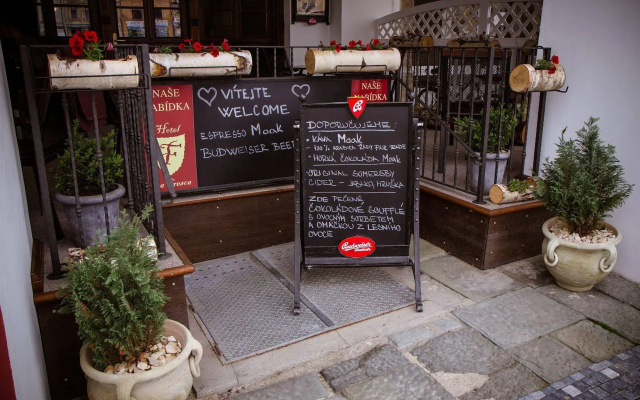 NAŠE
NABÍDKA
Hotel
VÍTEJTE
WELCOME
ESPRESSO Maak
BUDWEISER BEER
NAŠE
NABÍDKA
DOPORUČUJEME:
- KÁVA MOAK
100% ARABICA FAIR TRADE
- HORKÁ ČOKOLÁDA MOAK
- ORIGINAL SOMERSBY
CIDER - JABLKO, HRUŠKA
ZDE PEČENÉ
ČOKOLÁDOVÉ SOUFFLÉ
S OVOCNÝM SORBETEM
A OMÁČKOU Z LESNÍHO
OVOCE
Budweiser